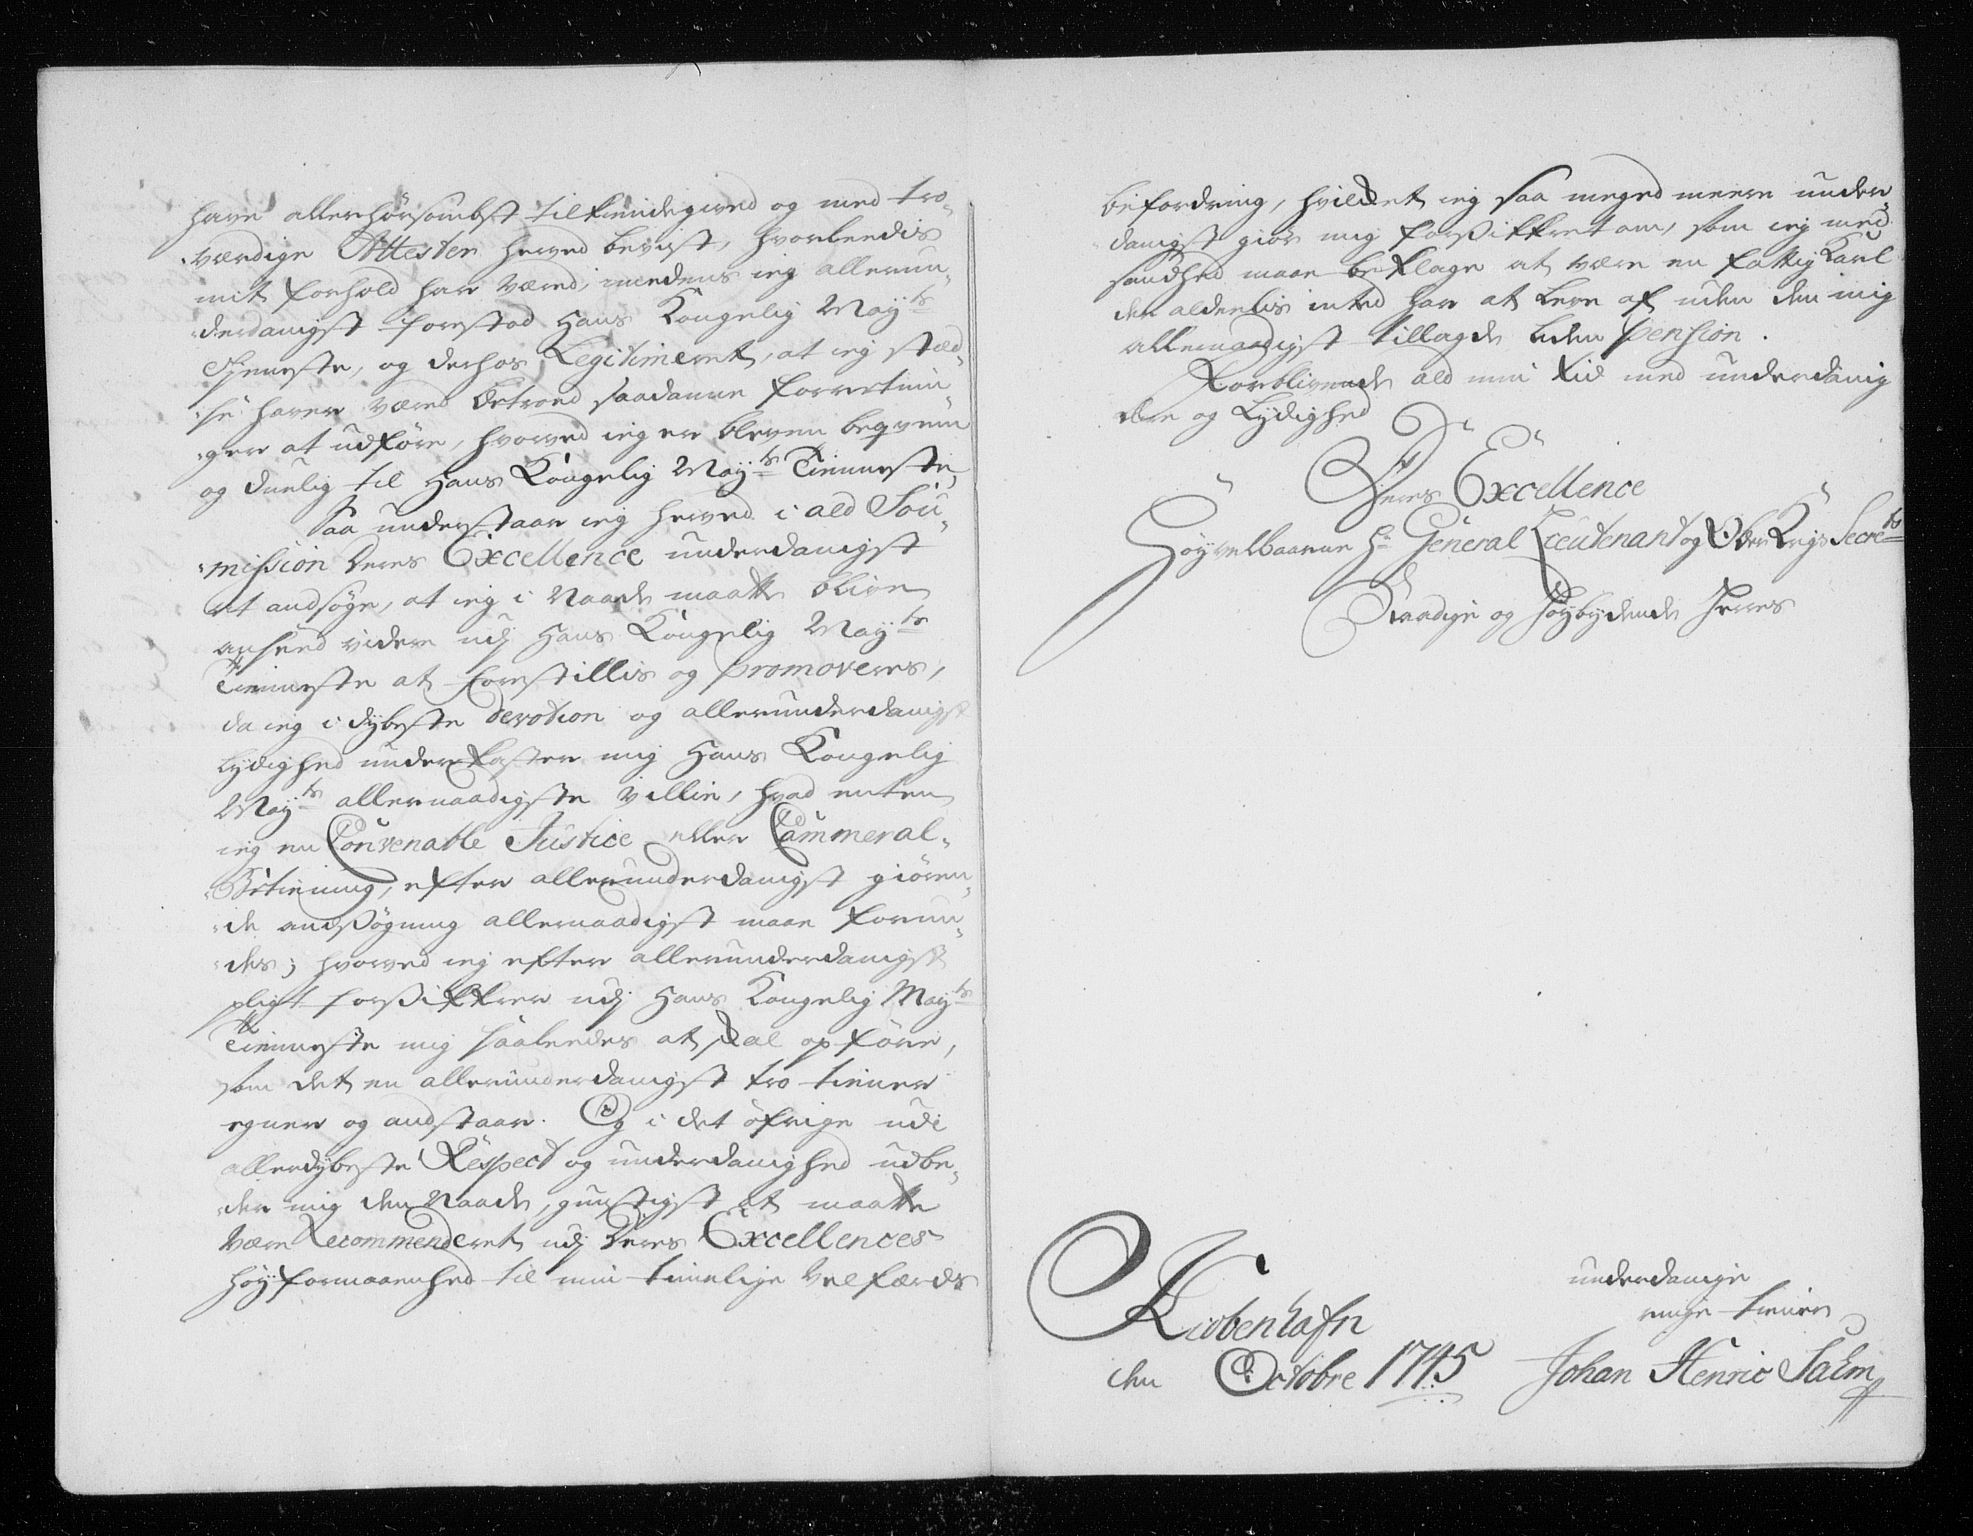 have allerhörsombst tilkiendegived og med tro-
værdige Attester herved bevist, hvorleedis
mit forhold har væred, imedens ieg allerun-
derdanigst forestod Hans Kongelig Mayts
Tieneste, og derhos Legitimeret, at ieg stæd-
se haver været betroed saadanne forretnin-
ger at udföre, hvorved ieg er bleven beqvem
og duelig til Hans Kongelig Mayts Tienneste,
Saa understaar ieg herved i ald Sou-
mission Deres Excellence underdanigst
at andsöge, at ieg i Naade maatte blive
anseed videre udj Hans Kongelig Mayts
Tienneste at forestillis og promoveres,
da ieg i dybeste devotion og allerunderdanigst
lydighed underkaster mig Hans Kongelig
Mayts allernaadigste villie, hvad enten
ieg en Convenable Justice eller Cammeral-
Betiening, efter allerunderdanigst giören-
de andsögning allernaadigst maae forun-
des; hvorved ieg efter allerunderdanigst
pligt forsikkrer udj Hans Kongelig Mayts
Tienneste mig saaleedes at skal opföre,
som det en allerunderdanigst tro tiener
egner og andstaar. Og i det öfrige udi
allerdybeste Respect og underdanighed udbe-
der mig den Naade, gunstigst at maatte
være Recommenderet udj Deres Excellences
höyformaaenhed til min timelige velfærds
befordring, hvilket ieg saa meged meere under-
danigst giör mig forsikkret om, som ieg med
sandhed maae beklage at være en fattig Karl
der aldeelis inted har at leve af uden den mig
allernaadigst tillagde liden pension.
Forblivende ald min tid med underdanig
ære og lydighed
Deres Excellence
Höyvelbaarne Hr General Lieutenant og Ober Krigs Secrets
Naadige og höybydende Herres
Kiobenhafn
den Octobre 1745
underdanige
ringe tiener
Johan Henric Salm